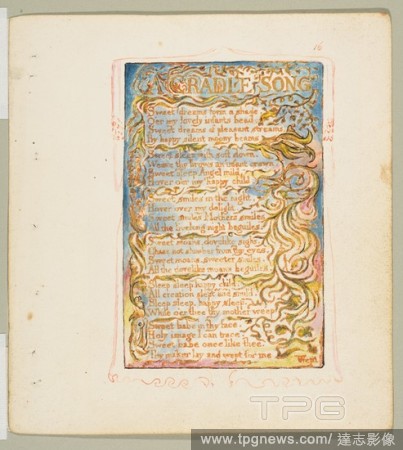 A CRADLE SONG
Sweet dreams form a shade
Oer my lovely infants head.
Sweet dreams of pleasant streams
By happy silent moony beams
Sweet sleep with soft down.
Weave thy brows an infant crown.
Sweet sleep Angel mild,
Hover oer my happy child.
Sweet smiles in the night,
Hover over my delight.
Sweet smiles Mothers smiles
All the livelong night beguiles.
Sweet moans, dovelike sighs,
Chase not slumber from thy eyes,
Sweet moans, sweeter smiles,
All the dovelike moans beguiles.
Sleep sleep happy child.
All creation slept and smil'd.
Sleep sleep, happy sleep,
While oer thee thy mother weep
Sweet babe in thy face,
Holy image I can trace.
Sweet babe once like thee,
Thy maker lay and wept for me
Wept
TPG
www.tpgnews.com/ 達志影像